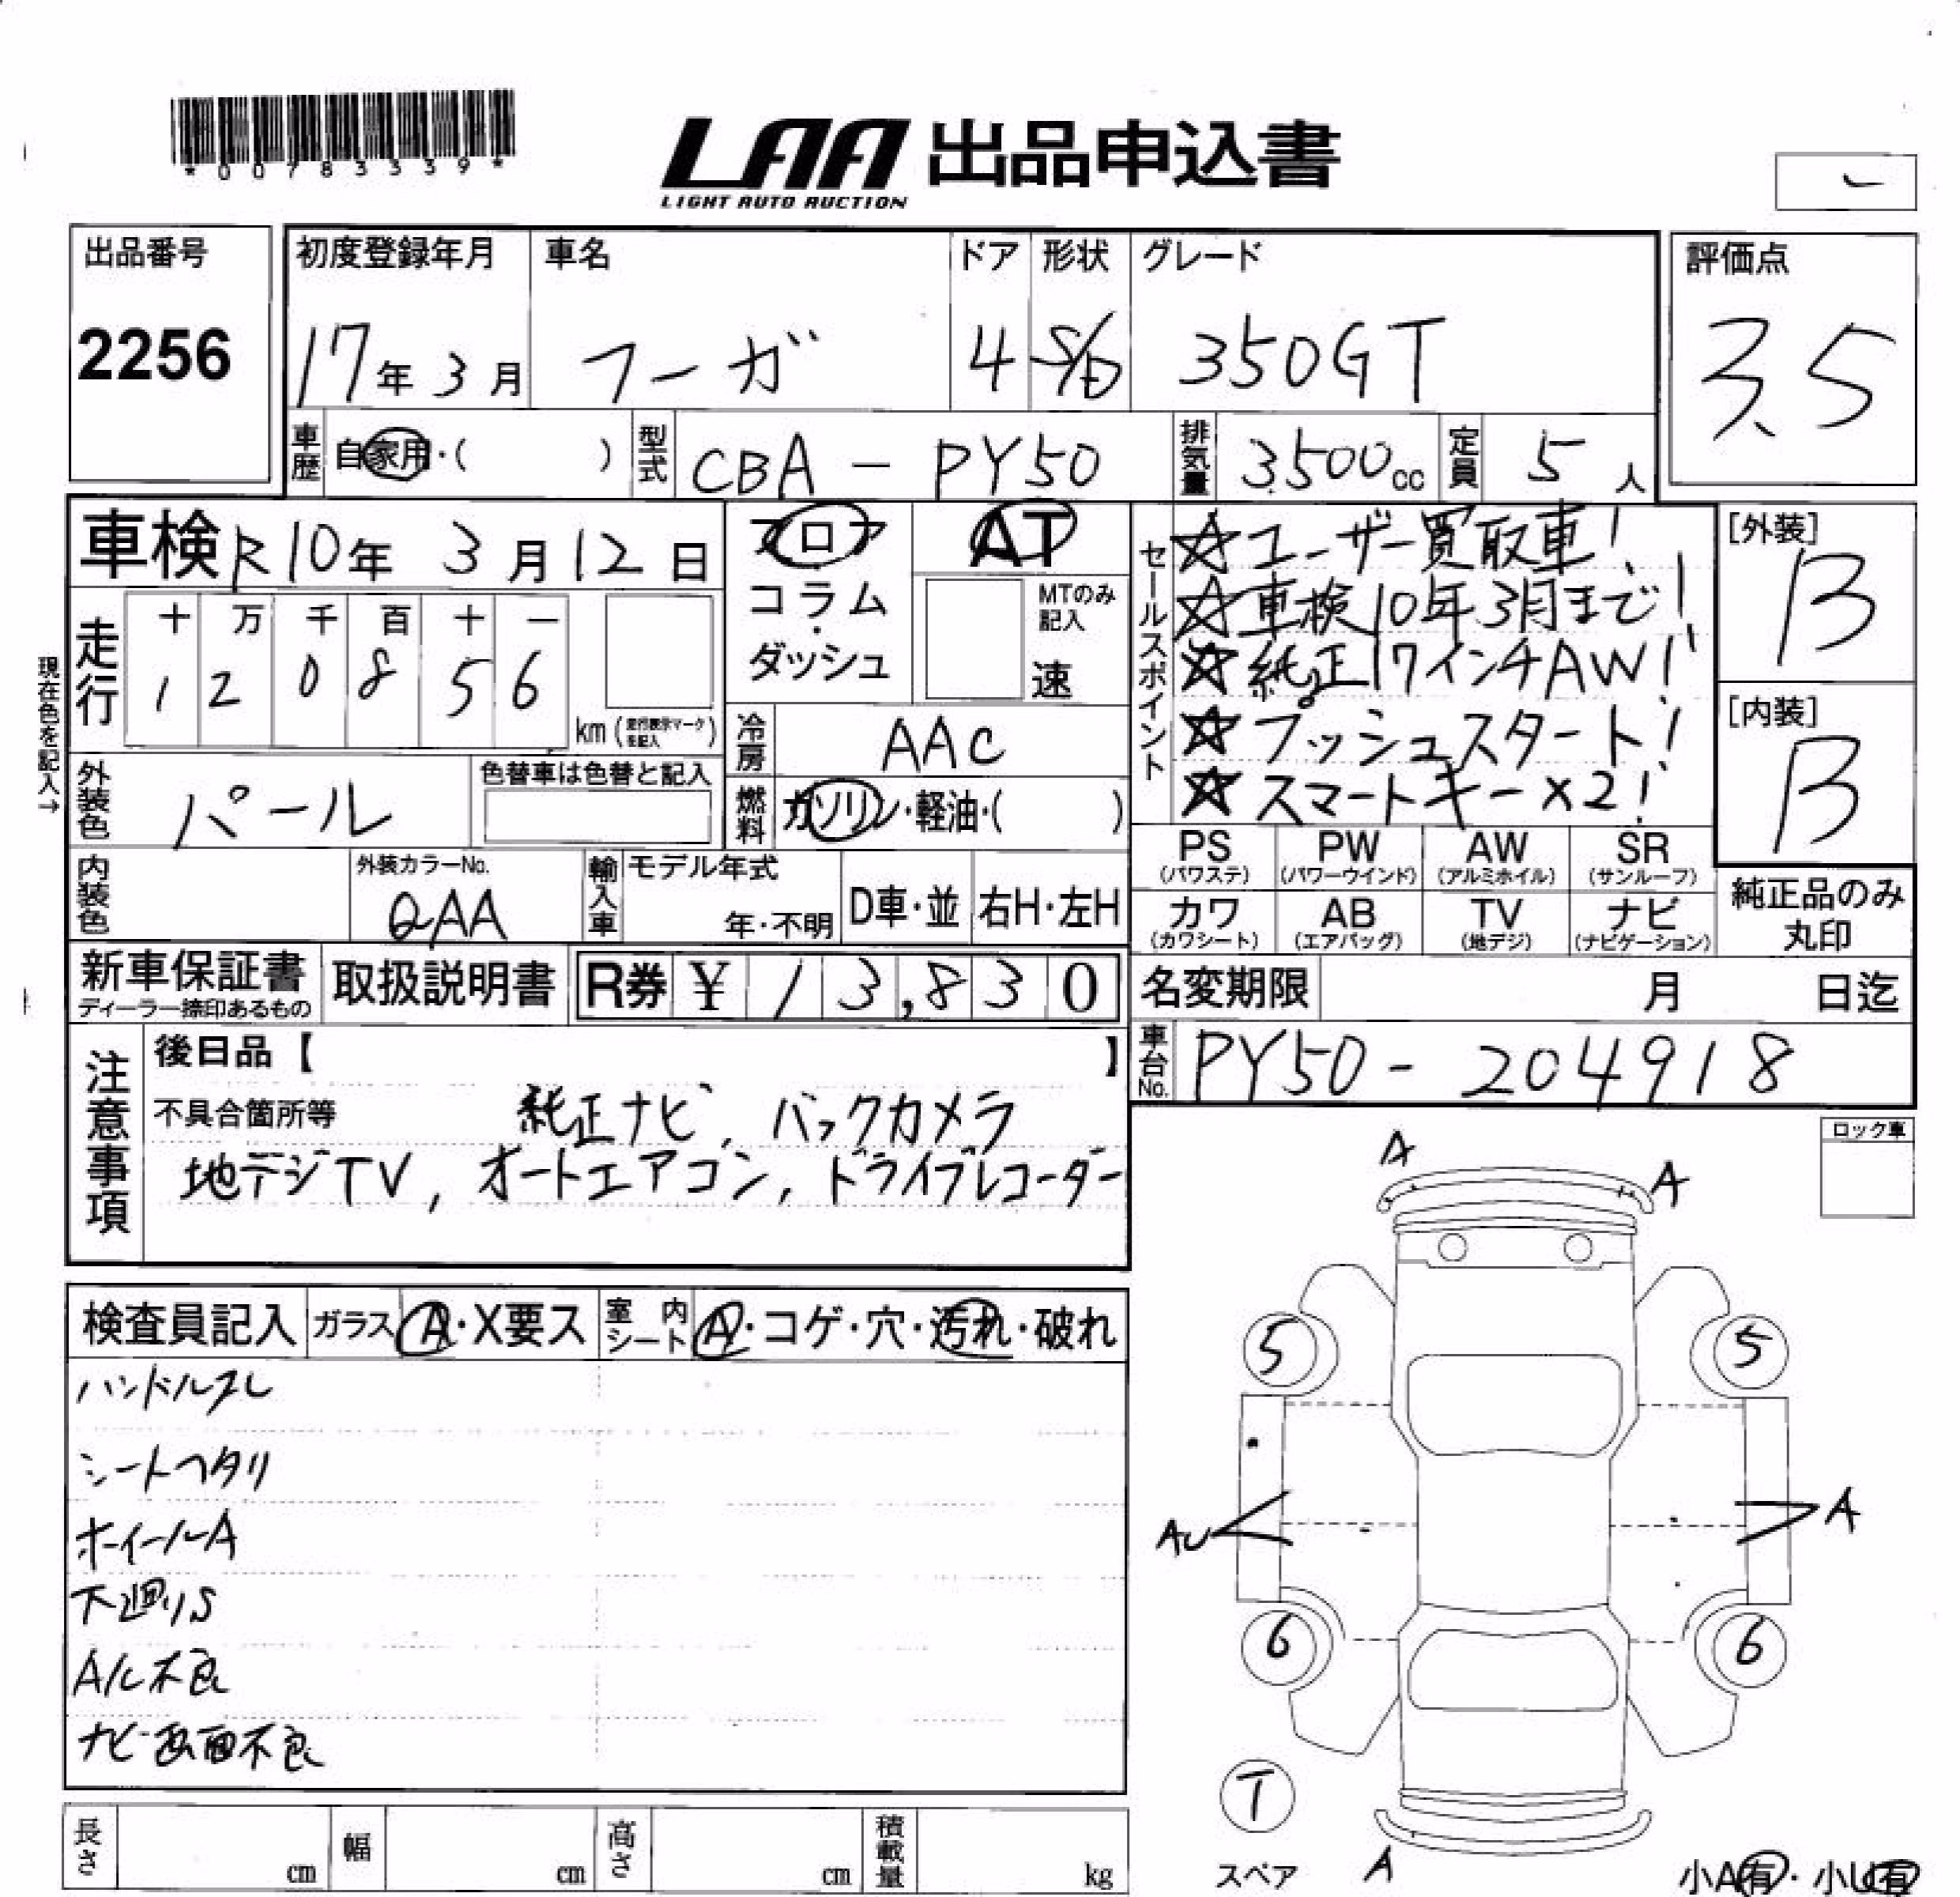 *00783339*
LAA 出品申込書
LIGHT AUTO AUCTION
出品番号
2256
初度登録年月
17年 3月
車名
フーガ
ドア
4
形状
S/D
グレード
350GT
評価点
3.5
車歴
自家用・( )
型式
CBA - PY50
排気量
3500cc
定員
5人
車検 R10年 3月12日
フロア
コラム
・
ダッシュ
AT
MTのみ
記入
速
セールスポイント
☆ユーザー買取車!
☆車検10年3月まで!
☆純正17インチAW!
☆プッシュスタート!
☆スマートキー×2!
[外装]
B
[内装]
B
現在色を記入→
走行
十 万 千 百 十 一
1 2 0 8 5 6
km (走行表示マークを記入)
冷房
AAC
外装色
パール
色替車は色替と記入
燃料
ガソリン・軽油・( )
内装色
外装カラーNo.
QAA
輸入車
モデル年式
年・不明
D車・並
右H・左H
PS
(パワステ)
PW
(パワーウインド)
AW
(アルミホイル)
SR
(サンルーフ)
カワ
(カワシート)
AB
(エアバッグ)
TV
(地デジ)
ナビ
(ナビゲーション)
純正品のみ
丸印
新車保証書
ディーラー捺印あるもの
取扱説明書
R券 ¥ 13,830
名変期限 月 日迄
車台No.
PY50 - 204918
注意事項
後日品【 】
不具合箇所等 純正ナビ, バックカメラ
地デジTV, オートエアコン, ドライブレコーダー
ロック車
A
A
検査員記入
ガラス A・X要ス
室内シート A・コゲ・穴・汚れ・破れ
ハンドルスレ
シートヘタリ
ホイールA
下廻りS
A/C不良
ナビ画面不良
5 5
AU A
6 6
T
スペア
A
小A有・小U有
長さ cm
幅 cm
高さ cm
積載量 kg